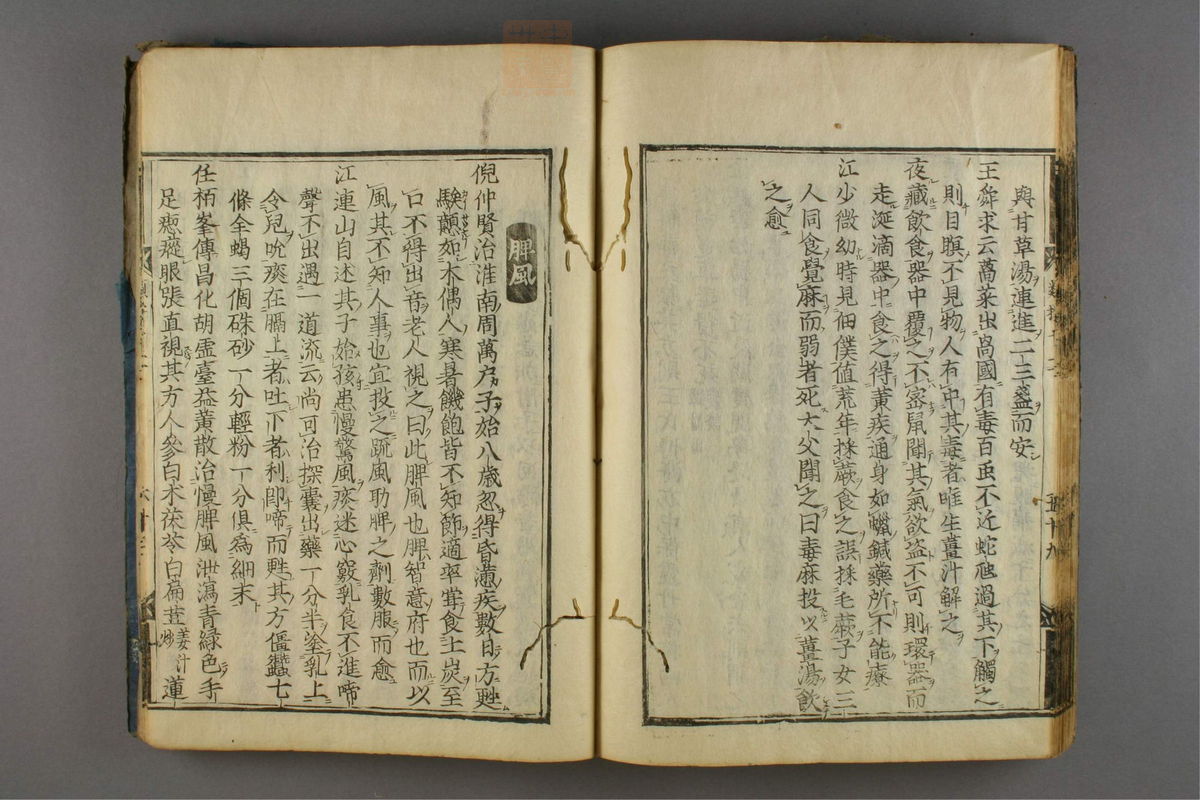 與甘草湯連進二三盞而安
王舜求云萵菜出咼國有毒百虫不近蛇虺過其下觸之
則目瞑不見物人有中其毒者唯生薑汁解之
夜藏飲食器中覆之不密鼠聞其氣欲盜不可則環器而
走涎滴器中食之得黃疾通身如蠟鍼藥所不能療
江少微幼時見佃僕值荒年採蕨食之誤採毛蕨子女三
人同食覺麻而弱者死大父聞之曰毒麻投以薑湯飲
之愈
五十九
脾風
倪仲賢治淮南周萬戶子始八歲忽得昏憊疾數日方甦
騃顛如木偶人寒暑饑飽皆不知節適率嘗食土炭至
口不得出音老人視之曰此脾風也脾智意府也而以
風其不知人事也宜投之疏風助脾之劑數服而愈
江連山自述其子始孩患慢驚風痰迷心竅乳食不進啼
聲不出遇一道流云尚可治探囊出藥一分半塗乳上
令兒吮痰在膈上者吐下者利卽啼而甦其方僵蠶七
條全蝎三個硃砂一分輕粉一分俱為細末
任柄峯傳昌化胡虛臺益黃散治慢脾風泄瀉青綠色手
足瘛瘲眼張直視其方人參白术茯苓白扁荳姜汁炒蓮